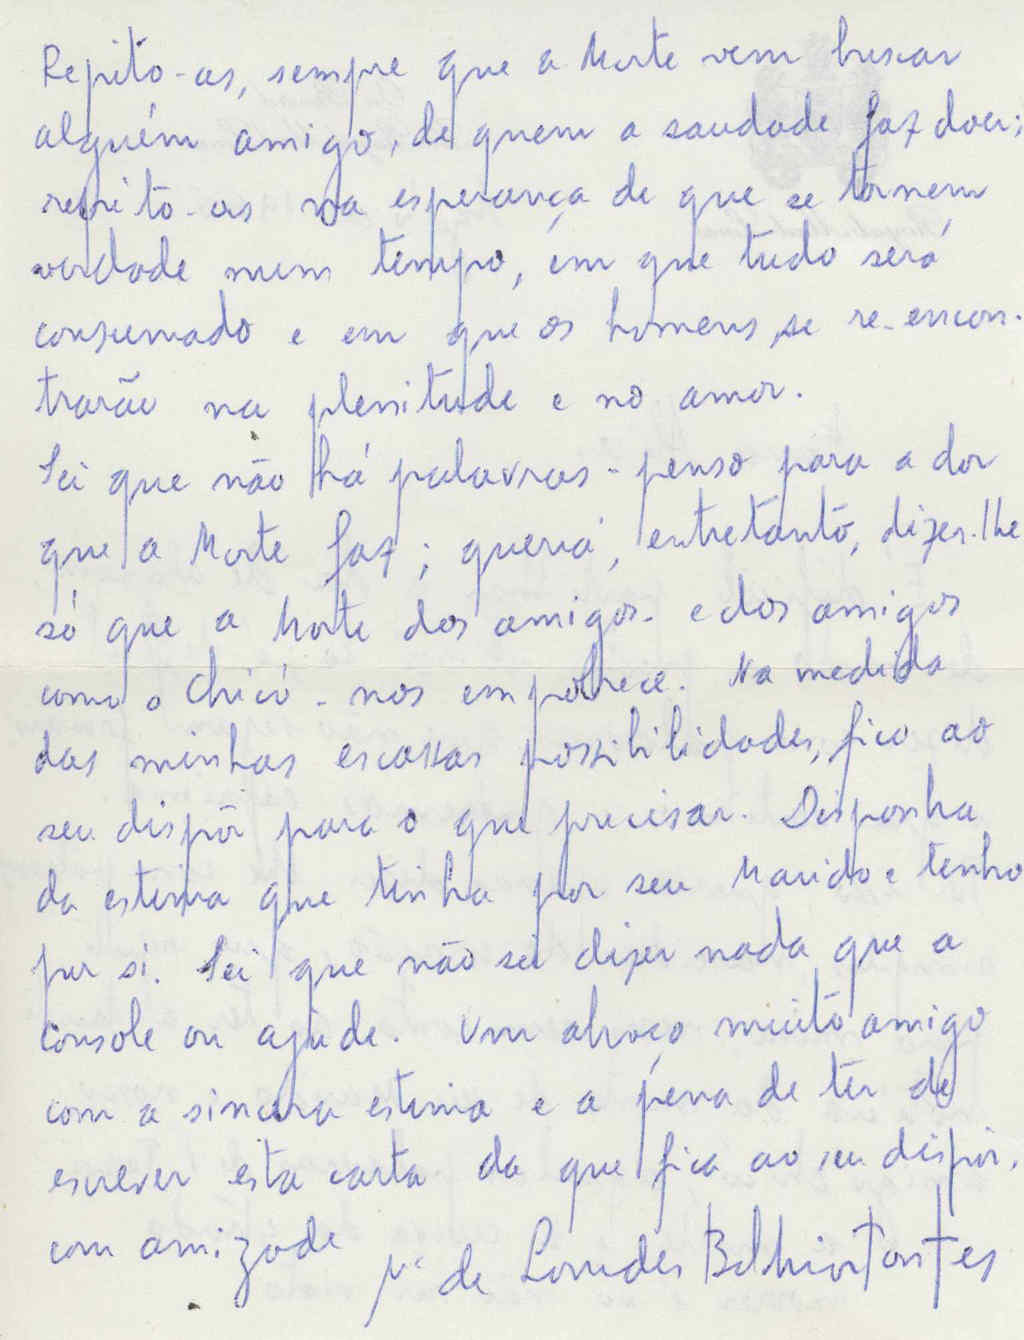 Repito-as, sempre que a Morte vem buscar
alguém amigo, de quem a saudade faz doer;
repito-as na esperança de que se tornem
verdade num tempo, em que tudo será
consumado e em que os homens se re-encon-
trarão na plenitude e no amor.
Sei que não há palavras - penso para a dor
que a Morte faz; queria, entretanto, dizer-lhe
só que a Morte dos amigos - e dos amigos
como o Chico - nos empobrece. Na medida
das minhas escassas possibilidades, fico ao
seu dispôr para o que precisar. Disponha
da estima que tinha por seu Marido e tenho
por si. Sei que não sei dizer nada que a
console ou ajude. Um abraço muito amigo
com a sincera estima e a pena de ter de
escrever esta carta da que fica ao seu dispôr,
com amizade
Mª de Lourdes Belchior Pontes